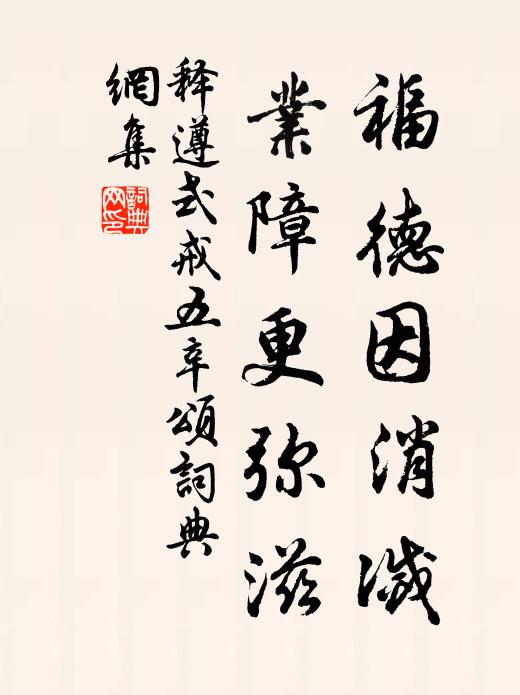 福德因消滅
業障更弥滋
释遵式戒五辛頌詞典
網集
詞典
网印